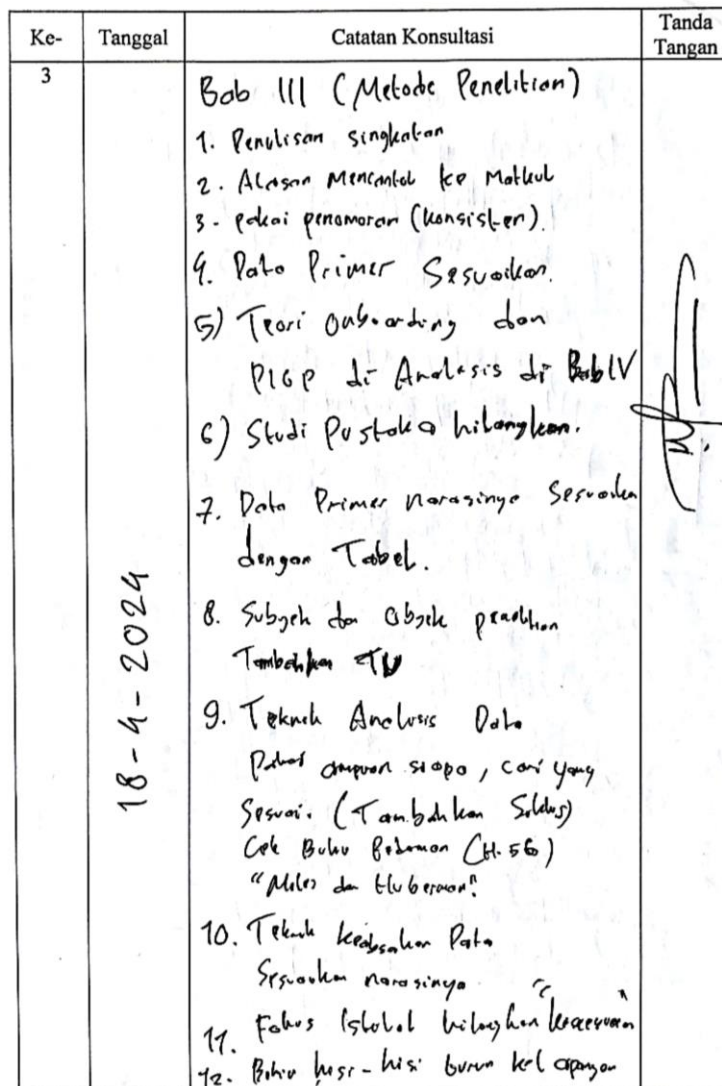 Ke-
Tanggal
Catatan Konsultasi
Tanda
Tangan
3
18-4-2024
Bab III (Metode Penelitian)
1. Penulisan singkatan
2. Alasan Mencantol ke Matkul
3. pakai penomoran (konsisten).
4. Data Primer Sesuaikan.
5) Teori Onboarding dan
PIGP di Analisis di Bab IV
6) Studi Pustaka hilangkan.
7. Data Primer narasinya Sesuaikan
dengan Tabel.
8. Subyek dan Obyek penelitian
Tambahkan TU
9. Teknik Analisis Data
siapa, cari yang
Sesuai. (Tambahkan Siklus)
Cek Buku Pedoman (H. 56)
"Miles dan Huberman"
10. Teknik keabsahan Data
Sesuaikan narasinya
11. Fokus hilangkan
12. kisi-kisi